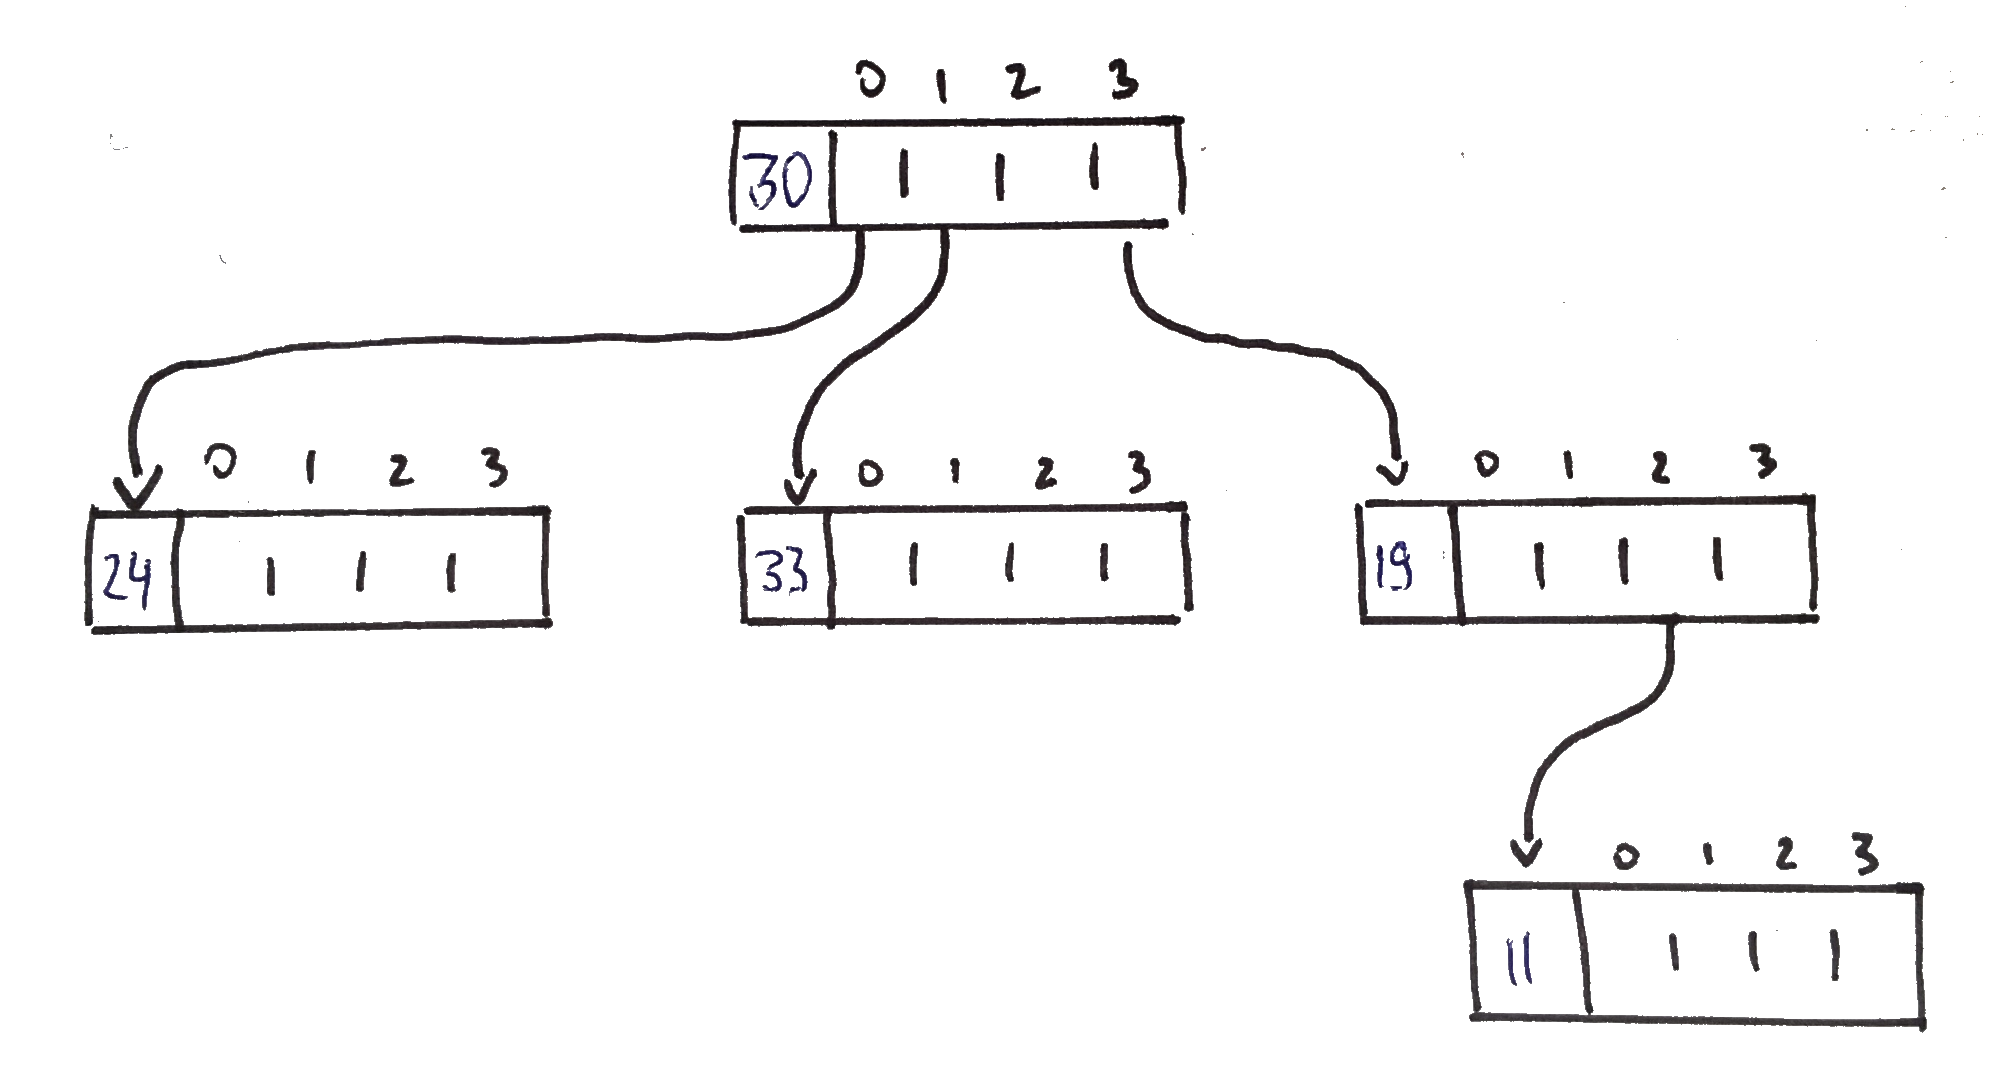 0 1 2 3
30
0 1 2 3
24
0 1 2 3
33
0 1 2 3
19
0 1 2 3
11